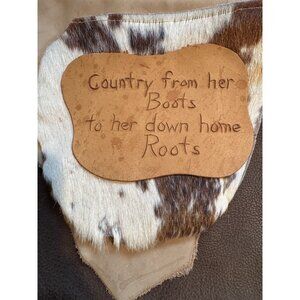 Country from her
Boots
to her down home
Roots